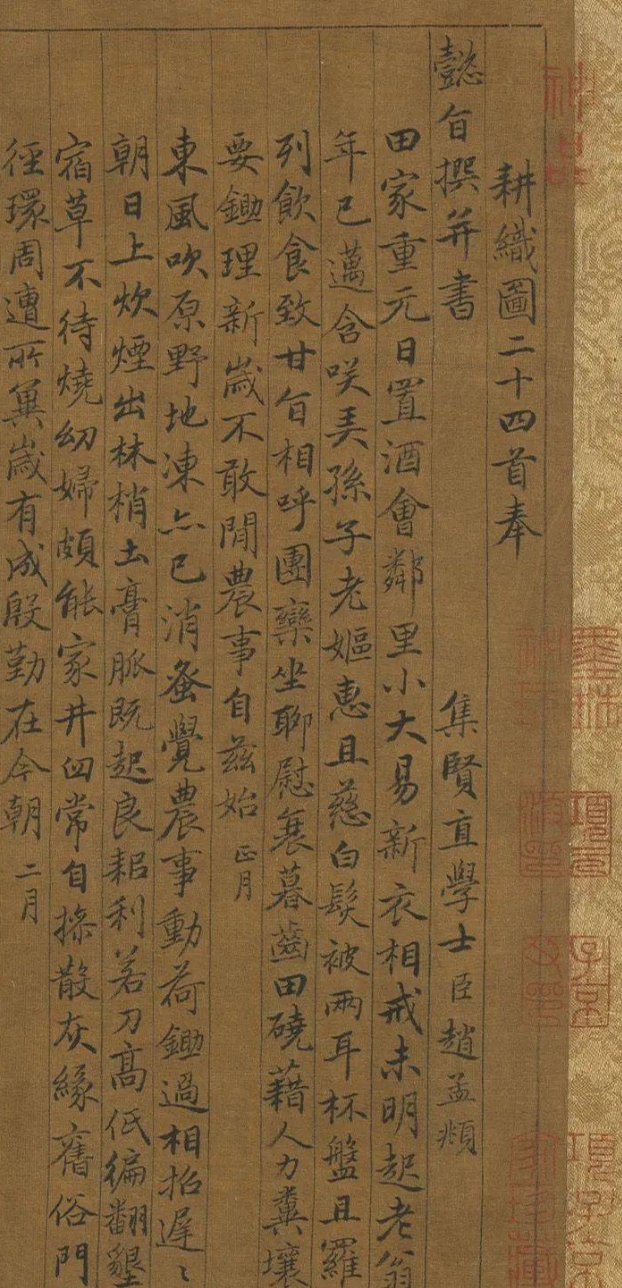 耕織圖二十四首奉
懿旨撰并書 集賢直學士臣趙孟頫
田家重元日置酒會鄰里小大易新衣相戒未明起老翁
年已邁含咲弄孫子老嫗惠且慈白髮被兩耳杯盤且羅
列飲食致甘旨相呼團欒坐聊慰衰暮齒田磽藉人力糞壤
要鋤理新歲不敢閒農事自茲始 正月
東風吹原野地凍亦已消蚤覺農事動荷鋤過相招遲〻
朝日上炊煙出林梢土膏脈既起良耜利若刀高低徧翻墾
宿草不待燒幼婦頗能家井臼常自操散灰緣舊俗門
徑環周遭所冀歲有成殷勤在今朝 二月